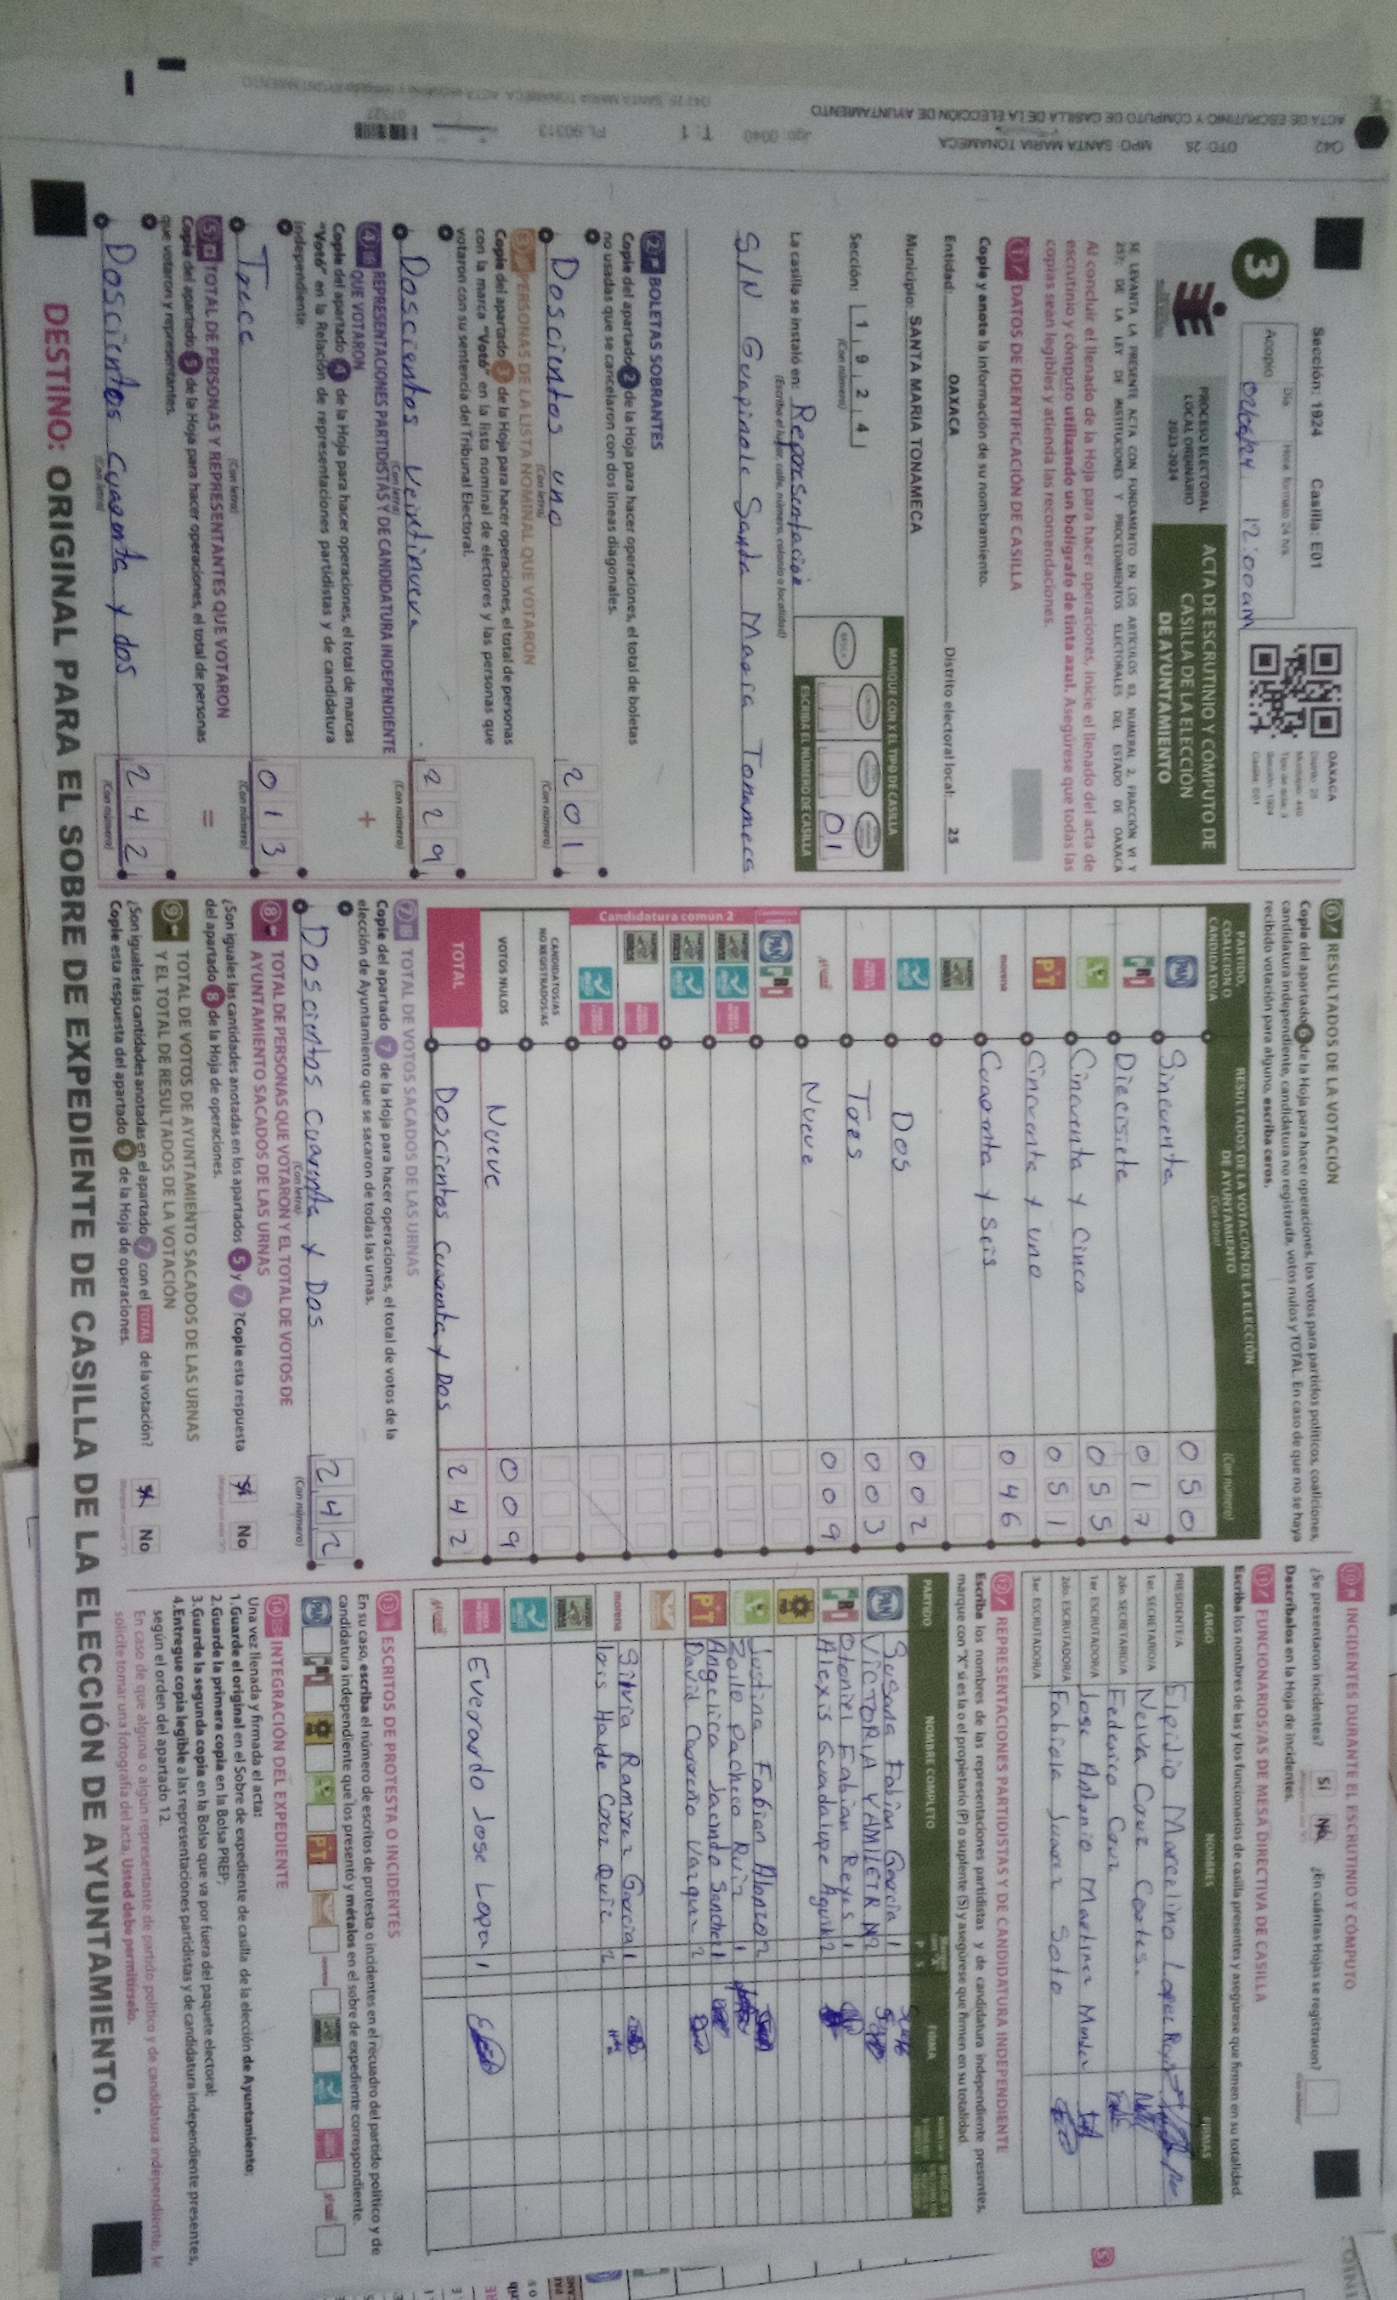 Sección: 1924 Casilla: E01
Día Hora: formato 24 hrs.
3
Acopio:
12:00am
OAXACA
Distrito: 25
PROCESO ELECTORAL
LOCAL ORDINARIO
2023-2024
ACTA DE ESCRUTINIO Y CÓMPUTO DE
CASILLA DE LA ELECCIÓN
DE AYUNTAMIENTO
SE LEVANTA LA PRESENTE ACTA CON FUNDAMENTO EN LOS ARTÍCULOS 83, NUMERAL 2, FRACCIÓN VI Y
257; DE LA LEY DE INSTITUCIONES Y PROCEDIMIENTOS ELECTORALES DEL ESTADO DE OAXACA
Al concluir el llenado de la Hoja para hacer operaciones, inicie el llenado del acta de
escrutinio y cómputo utilizando un bolígrafo de tinta azul. Asegúrese que todas las
copias sean legibles y atienda las recomendaciones.
1 DATOS DE IDENTIFICACIÓN DE CASILLA
Copie y anote la información de su nombramiento.
Entidad: OAXACA Distrito electoral local: 25
Municipio: SANTA MARIA TONAMECA
Sección: 1 9 2 4
(Con número)
MARQUE CON X EL TIPO DE CASILLA
01
ESCRIBA EL NÚMERO DE CASILLA
La casilla se instaló en: Representación
(Escriba el lugar, calle, número, colonia o localidad)
S/N Guapinole Santa Maria Tonameca
2 BOLETAS SOBRANTES
Copie del apartado 2 de la Hoja para hacer operaciones, el total de boletas
no usadas que se cancelaron con dos líneas diagonales.
Doscientos uno 201
(Con letra) (Con número)
3 PERSONAS DE LA LISTA NOMINAL QUE VOTARON
Copie del apartado 3 de la Hoja para hacer operaciones, el total de personas
con la marca "Votó" en la lista nominal de electores y las personas que
votaron con su sentencia del Tribunal Electoral.
Doscientos Veintinueve 229
(Con letra) (Con número)
4 REPRESENTACIONES PARTIDISTAS Y DE CANDIDATURA INDEPENDIENTE
QUE VOTARON
Copie del apartado 4 de la Hoja para hacer operaciones, el total de marcas
"Votó" en la Relación de representaciones partidistas y de candidatura
independiente.
+
Trece 013
(Con letra) (Con número)
5 TOTAL DE PERSONAS Y REPRESENTANTES QUE VOTARON
Copie del apartado 5 de la Hoja para hacer operaciones, el total de personas
que votaron y representantes.
=
Doscientos Cuarenta y dos 242
(Con letra) (Con número)
6 RESULTADOS DE LA VOTACIÓN
Copie del apartado 6 de la Hoja para hacer operaciones, los votos para partidos políticos, coaliciones,
candidatura independiente, candidatura no registrada, votos nulos y TOTAL. En caso de que no se haya
recibido votación para alguno, escriba ceros.
PARTIDO,
COALICIÓN O
CANDIDATO/A
RESULTADOS DE LA VOTACIÓN DE LA ELECCIÓN
DE AYUNTAMIENTO
(Con letra) (Con número)
PAN Sincuenta 050
PRI Diecisiete 017
Cincuenta y Cinco 055
PT Cincuenta y uno 051
morena Cuarenta y Seis 046
Dos 002
Tres 003
Nueve 009
Candidatura común 2
CANDIDATOS/AS
NO REGISTRADOS/AS
VOTOS NULOS Nueve 009
TOTAL Doscientos Cuarenta y Dos 242
7 TOTAL DE VOTOS SACADOS DE LAS URNAS
Copie del apartado 7 de la Hoja para hacer operaciones, el total de votos de la
elección de Ayuntamiento que se sacaron de todas las urnas.
Doscientos Cuarenta y Dos 242
(Con letra) (Con número)
8 TOTAL DE PERSONAS QUE VOTARON Y EL TOTAL DE VOTOS DE
AYUNTAMIENTO SACADOS DE LAS URNAS
¿Son iguales las cantidades anotadas en los apartados 5 y 7? Copie esta respuesta
del apartado 8 de la Hoja de operaciones.
Sí No
9 TOTAL DE VOTOS DE AYUNTAMIENTO SACADOS DE LAS URNAS
Y EL TOTAL DE RESULTADOS DE LA VOTACIÓN
¿Son iguales las cantidades anotadas en el apartado 7 con el TOTAL de la votación?
Copie esta respuesta del apartado 9 de la Hoja de operaciones.
Sí No
10 INCIDENTES DURANTE EL ESCRUTINIO Y CÓMPUTO
¿Se presentaron incidentes? Sí No ¿En cuántas Hojas se registraron?
Descríbalos en la Hoja de incidentes.
11 FUNCIONARIOS/AS DE MESA DIRECTIVA DE CASILLA
Escriba los nombres de las y los funcionarios de casilla presentes y asegúrese que firmen en su totalidad.
CARGO NOMBRES FIRMAS
PRESIDENTE/A Elpidio Marcelino Lopez
1er. SECRETARIO/A Neiva Cruz Cortes.
2do. SECRETARIO/A Federico Cruz
1er. ESCRUTADOR/A Jose Antonio Martinez
2do. ESCRUTADOR/A Fabiola Juarez Soto
3er. ESCRUTADOR/A
12 REPRESENTACIONES PARTIDISTAS Y DE CANDIDATURA INDEPENDIENTE
Escriba los nombres de las representaciones partidistas y de candidatura independiente presentes,
marque con "X" si es la o el propietario (P) o suplente (S) y asegúrese que firmen en su totalidad.
PARTIDO NOMBRE COMPLETO P S FIRMA
PAN Susana Fabian Garcia 1
VICTORIA YAMILETR
PRI Otoniel Fabian Reyes 1
Alexis Guadalupe 2
Justina Fabian Alonzo 2
Zoilo Pacheco Ruiz 1
PT Angelica Jacinto Sanchez 1
David Carreño Vazquez 2
morena Silvia Ramirez Garcia 1
Jois Haide Cruz 2
Everardo Jose Lopez 1
13 ESCRITOS DE PROTESTA O INCIDENTES
En su caso, escriba el número de escritos de protesta o incidentes en el recuadro del partido político y de
candidatura independiente que los presentó y métalos en el sobre de expediente correspondiente.
14 INTEGRACIÓN DEL EXPEDIENTE
Una vez llenada y firmada el acta:
1.Guarde el original en el Sobre de expediente de casilla de la elección de Ayuntamiento;
2.Guarde la primera copia en la Bolsa PREP;
3.Guarde la segunda copia en la Bolsa que va por fuera del paquete electoral;
4.Entregue copia legible a las representaciones partidistas y de candidatura independiente presentes,
según el orden del apartado 12.
En caso de que alguna o algún representante de partido político y de candidatura independiente, le
solicite tomar una fotografía del acta, Usted debe permitírselo.
DESTINO: ORIGINAL PARA EL SOBRE DE EXPEDIENTE DE CASILLA DE LA ELECCIÓN DE AYUNTAMIENTO.
042 DTO: 25 MPO: SANTA MARIA TONAMECA
ACTA DE ESCRUTINIO Y CÓMPUTO DE CASILLA DE LA ELECCIÓN DE AYUNTAMIENTO